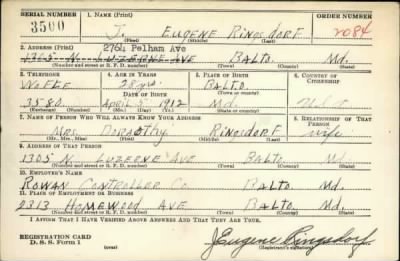 SERIAL NUMBER 1. NAME (Print) ORDER NUMBER
3500 J. EUGENE RINGSDORF 2084
2. ADDRESS (Print) 2764 Pelham Ave
1305 N. LUZERNE AVE BALTO. Md.
(Number and street or R. F. D. number) (Town) (County) (State)
3. TELEPHONE 4. AGE IN YEARS 5. PLACE OF BIRTH 6. COUNTRY OF CITIZENSHIP
WOLFE 28 BALTO.
DATE OF BIRTH
3580 APRIL 5 1912 Md. U.S.A
7. NAME OF PERSON WHO WILL ALWAYS KNOW YOUR ADDRESS 8. RELATIONSHIP OF THAT PERSON
MRS. DOROTHY RINGSDORF wife
(Mr., Mrs., Miss) (First) (Middle) (Last)
9. ADDRESS OF THAT PERSON
1305 N. LUZERNE AVE BALTO. Md.
(Number and street or R. F. D. number) (Town) (County) (State)
10. EMPLOYER'S NAME
ROWAN CONTROLLER CO. BALTO. Md.
11. PLACE OF EMPLOYMENT OR BUSINESS
2313 HOMEWOOD AVE BALTO. Md.
(Number and street or R. F. D. number) (Town) (County) (State)
I AFFIRM THAT I HAVE VERIFIED ABOVE ANSWERS AND THAT THEY ARE TRUE.
REGISTRATION CARD
D. S. S. Form 1 (over) J Eugene Ringsdorf
(Registrant's signature)